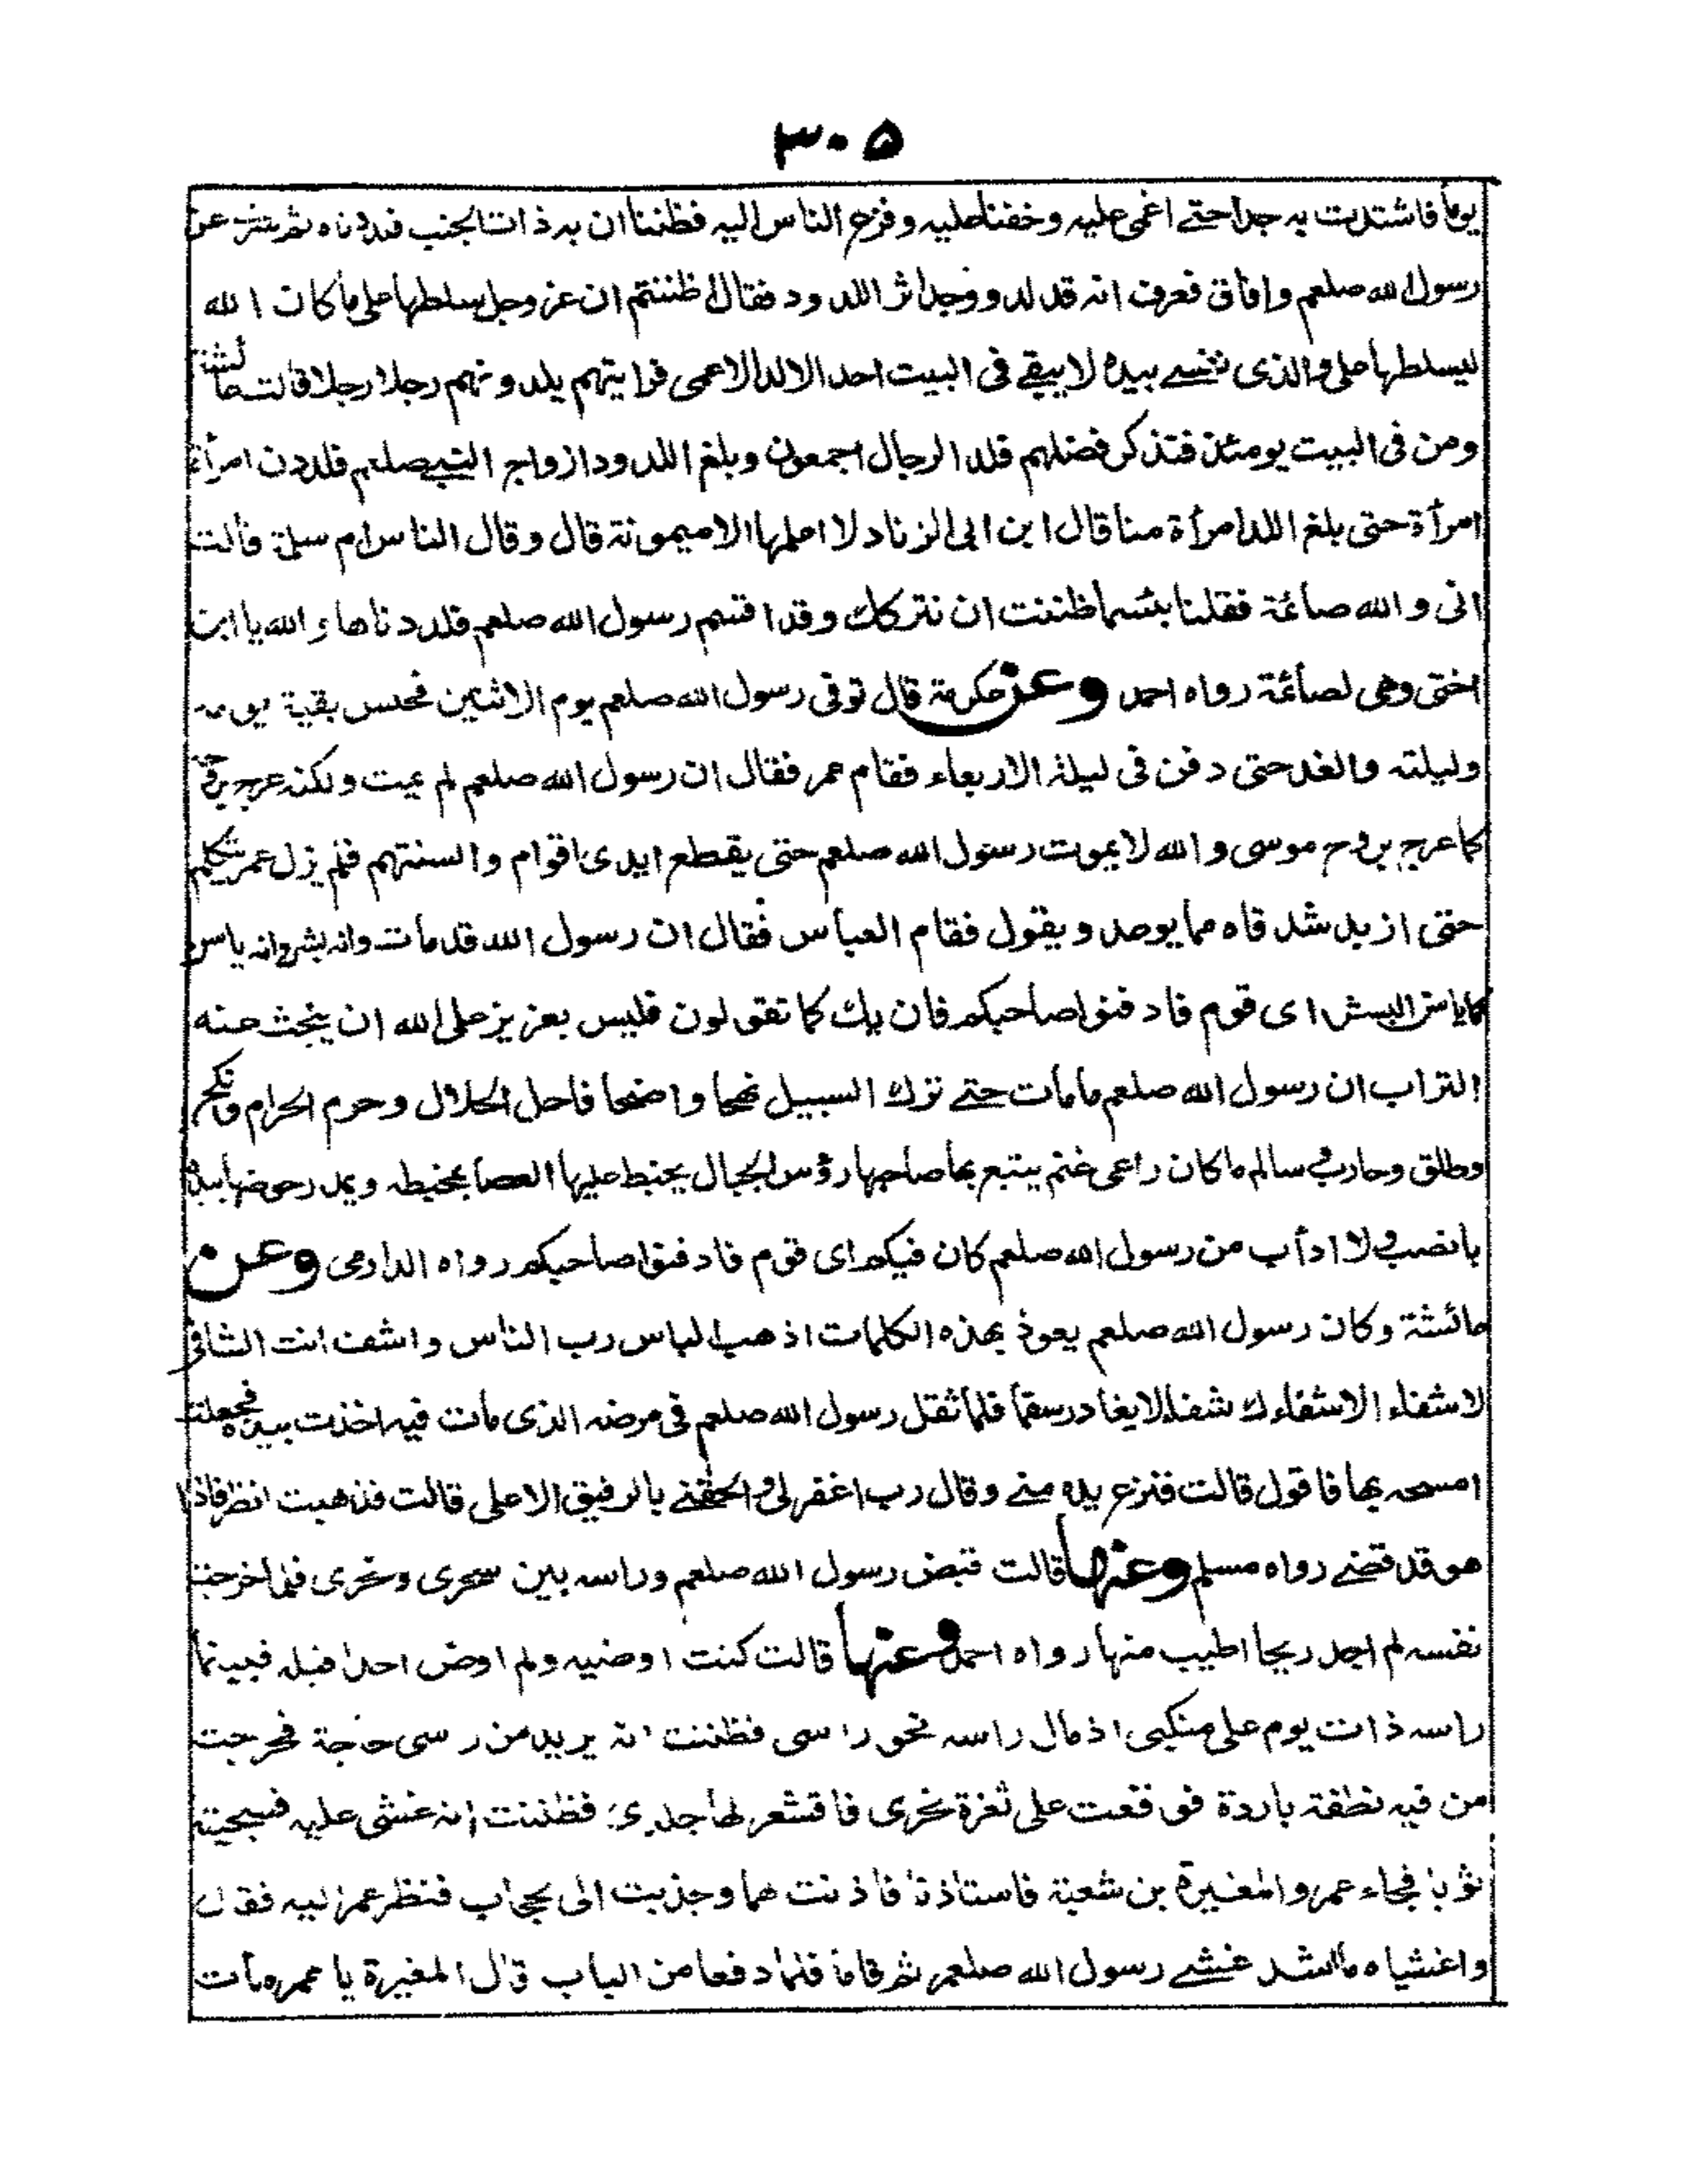 ٣٠۵
يوما فاشتدت به جدا حتے اغمی علیه وخفنا علیه وفزع الناس الیه فظننا ان به ذات الجنب فلددناه ثم سری عن
رسول الله صلعم وافاق فعرف انه قد لد ووجد اثر اللدود فقال اظننتم ان عز وجل سلطها علی ما کان الله
لیسلطها علی والذی نفسے بیده لا یبقے فی البیت احد الا لد الا عمی فرایتهم یلدونهم رجلا رجلا قالت عائشة
ومن فی البیت یومئذ فتذکر فضلهم فلد الرجال اجمعون وبلغ اللدود ازواج النبے صلعم فلددن امرأة
امرأة حتی بلغ اللد امرأة منا قال ابن ابی الزناد لا اعلمها الا میمونة قال وقال الناس ام سلمة قالت
انی والله صائمة فقلنا بئسما ظننت ان نترکك وقد اقسم رسول الله صلعم فلددناها والله یا ابن
اختی وهی لصائمة رواه احمد وعن عکرمة قال توفی رسول الله صلعم یوم الاثنین فحبس بقیة یومه
ولیلته والغد حتی دفن فی لیلة الاربعاء فقام عمر فقال ان رسول الله صلعم لم یمت ولکنه عرج بروحه
کما عرج بروح موسی والله لا یموت رسول الله صلعم حتی یقطع ایدی اقوام والسنتهم فلم یزل عمر یتکلم
حتی ازبد شدقاه مما یوعد ویقول فقام العباس فقال ان رسول الله قد مات وانه بشر وانه یاسن
کما یاسن البشر ای قوم فادفنوا صاحبکم فان یك کما تقولون فلیس بعزیز علی الله ان یبحث عنه
التراب ان رسول الله صلعم ما مات حتے ترك السبیل نهجا واضحا فاحل الحلال وحرم الحرام ونکح
وطلق وحارب وسالم ما کان راعی غنم یتبع بها صاحبها رؤس الجبال یخبط علیها العصا بمخبطه ویمدر حوضها بیده
بانصب ولا ادأب من رسول الله صلعم کان فیکم ای قوم فادفنوا صاحبکم رواه الدارمی وعن
عائشة وکان رسول الله صلعم یعوذ بهذه الکلمات اذهب الباس رب الناس واشف انت الشافی
لا شفاء الا شفاءك شفاء لا یغادر سقما فلما ثقل رسول الله صلعم فی مرضه الذی مات فیه اخذت بیده فجعلت
امسحه بها فاقول قالت فنزع یده منے وقال رب اغفر لی والحقنے بالرفیق الاعلی قالت فذهبت انظر فاذا
هو قد قضے رواه مسلم وعنها قالت قبض رسول الله صلعم وراسه بین سحری ونحری فلما خرجت
نفسه لم اجد ریحا اطیب منها رواه احمد وعنها قالت کنت اوضیه ولم اوض احدا قبله فبینما
راسه ذات یوم علی منکبی اذ مال راسه نحو راسی فظننت انه یرید من راسی حاجة فخرجت
من فیه نطفة باردة فوقعت علی ثغرة نحری فاقشعر لها جلدی فظننت انه غشی علیه فسجیته
ثوبا فجاء عمر والمغیرة بن شعبة فاستاذنا فاذنت لهما وجذبت الی بحجاب فنظر عمر الیه فقال
واغشیاه ما اشد غشے رسول الله صلعم ثم قاما فلما دفعا من الباب قال المغیرة یا عمر مات